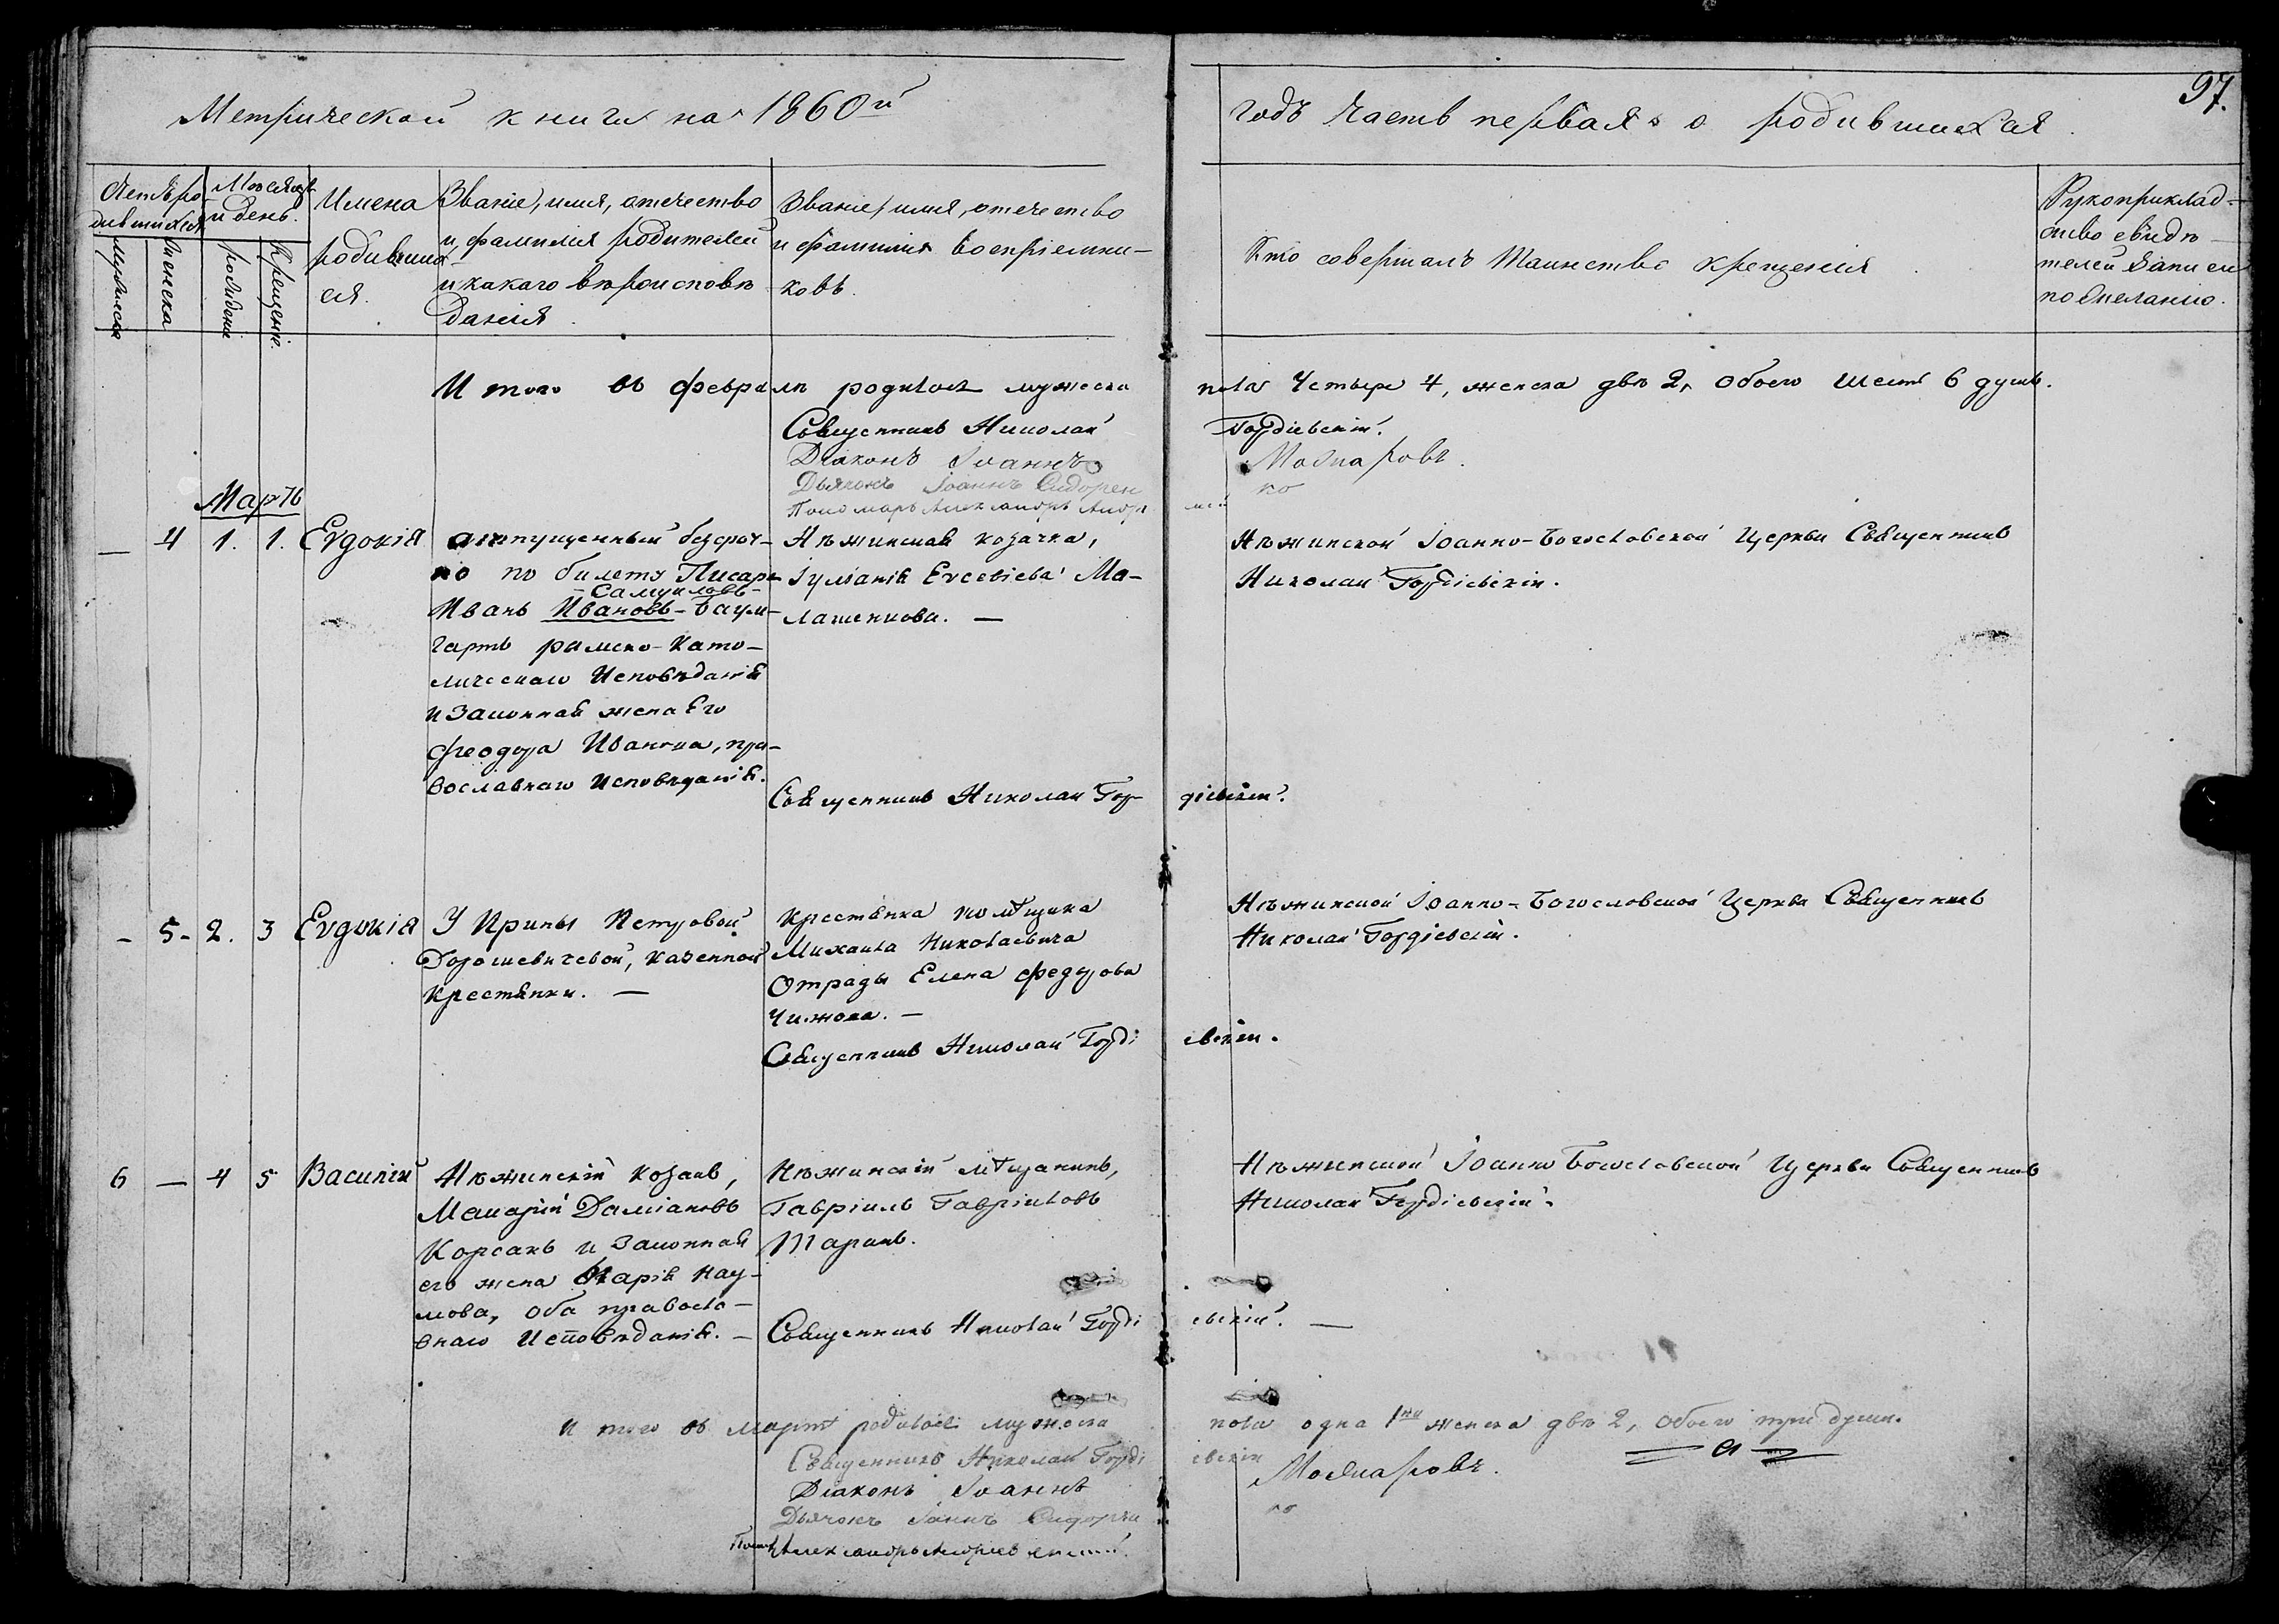 97.
Метрической книги на 1860й годъ часть первая о родившихся.
Счетъ родившихся
Мѣсяцъ и день.
Имена родившихся.
Званіе, имя, отечество и фамилія родителей и какого вѣроисповѣданія.
Званіе, имя, отечество и фамилія воспріемниковъ.
Кто совершалъ Таинство крещенія
Рукоприкладство свидѣтелей записи по желанію.
Мужеска
Женска
рожденія
крещеніе.
Итого въ февралѣ родилось мужеска пола Четыре 4, женска двѣ 2, обоего шесть 6 душъ.
Священникъ Николай Гордіевскій.
Діаконъ Іоаннъ
Дьячокъ Іоаннъ Сидоренко
Пономарь Александръ
Мартъ
— 4 1. 1. Евдокія
отпущенный безсроч-
но по билету Писарь
-Самуиловъ-
Иванъ Ивановъ-Баум-
гартъ римско-като-
лическаго Исповѣданія
и законная жена Его
Феодора Иванова, пра-
вославнаго Исповѣданія.
Нѣжинская козачка,
Іуліанія Евсевіева Ма-
лашенкова. —
Священникъ Николай Гордіевскій.
Нѣжинской Іоанно-Богословской Церкви Священникъ
Николай Гордіевскій.
- 5- 2. 3 Евдокія
У Ирины Петровой
Дорошевичевой, казенной
Крестянки. —
Крестянка помѣщика
Михаила Николаевича
Отрады Елена Федорова
Чижова. —
Священникъ Николай Гордіевскій.
Нѣжинской Іоанно-Богословской Церкви Священникъ
Николай Гордіевскій.
6 — 4 5 Василій
Нѣжинскій козакъ,
Макарій Даміановъ
Корсакъ и законная
его жена Марія Нау-
мова, оба правосла-
внаго Исповѣданія. —
Нѣжинскій мѣщанинъ,
Гавріилъ Гавріиловъ
Таранъ.
Священникъ Николай Гордіевскій. —
Нѣжинской Іоанно Богословской Церкви Священникъ
Николай Гордіевскій.
И того въ мартѣ родилось мужеска пола одна 1на женска двѣ 2, обоего три души.
Священникъ Николай Гордіевскій
Діаконъ Іоаннъ
Дьячокъ Іоаннъ Сидоренко
Александръ